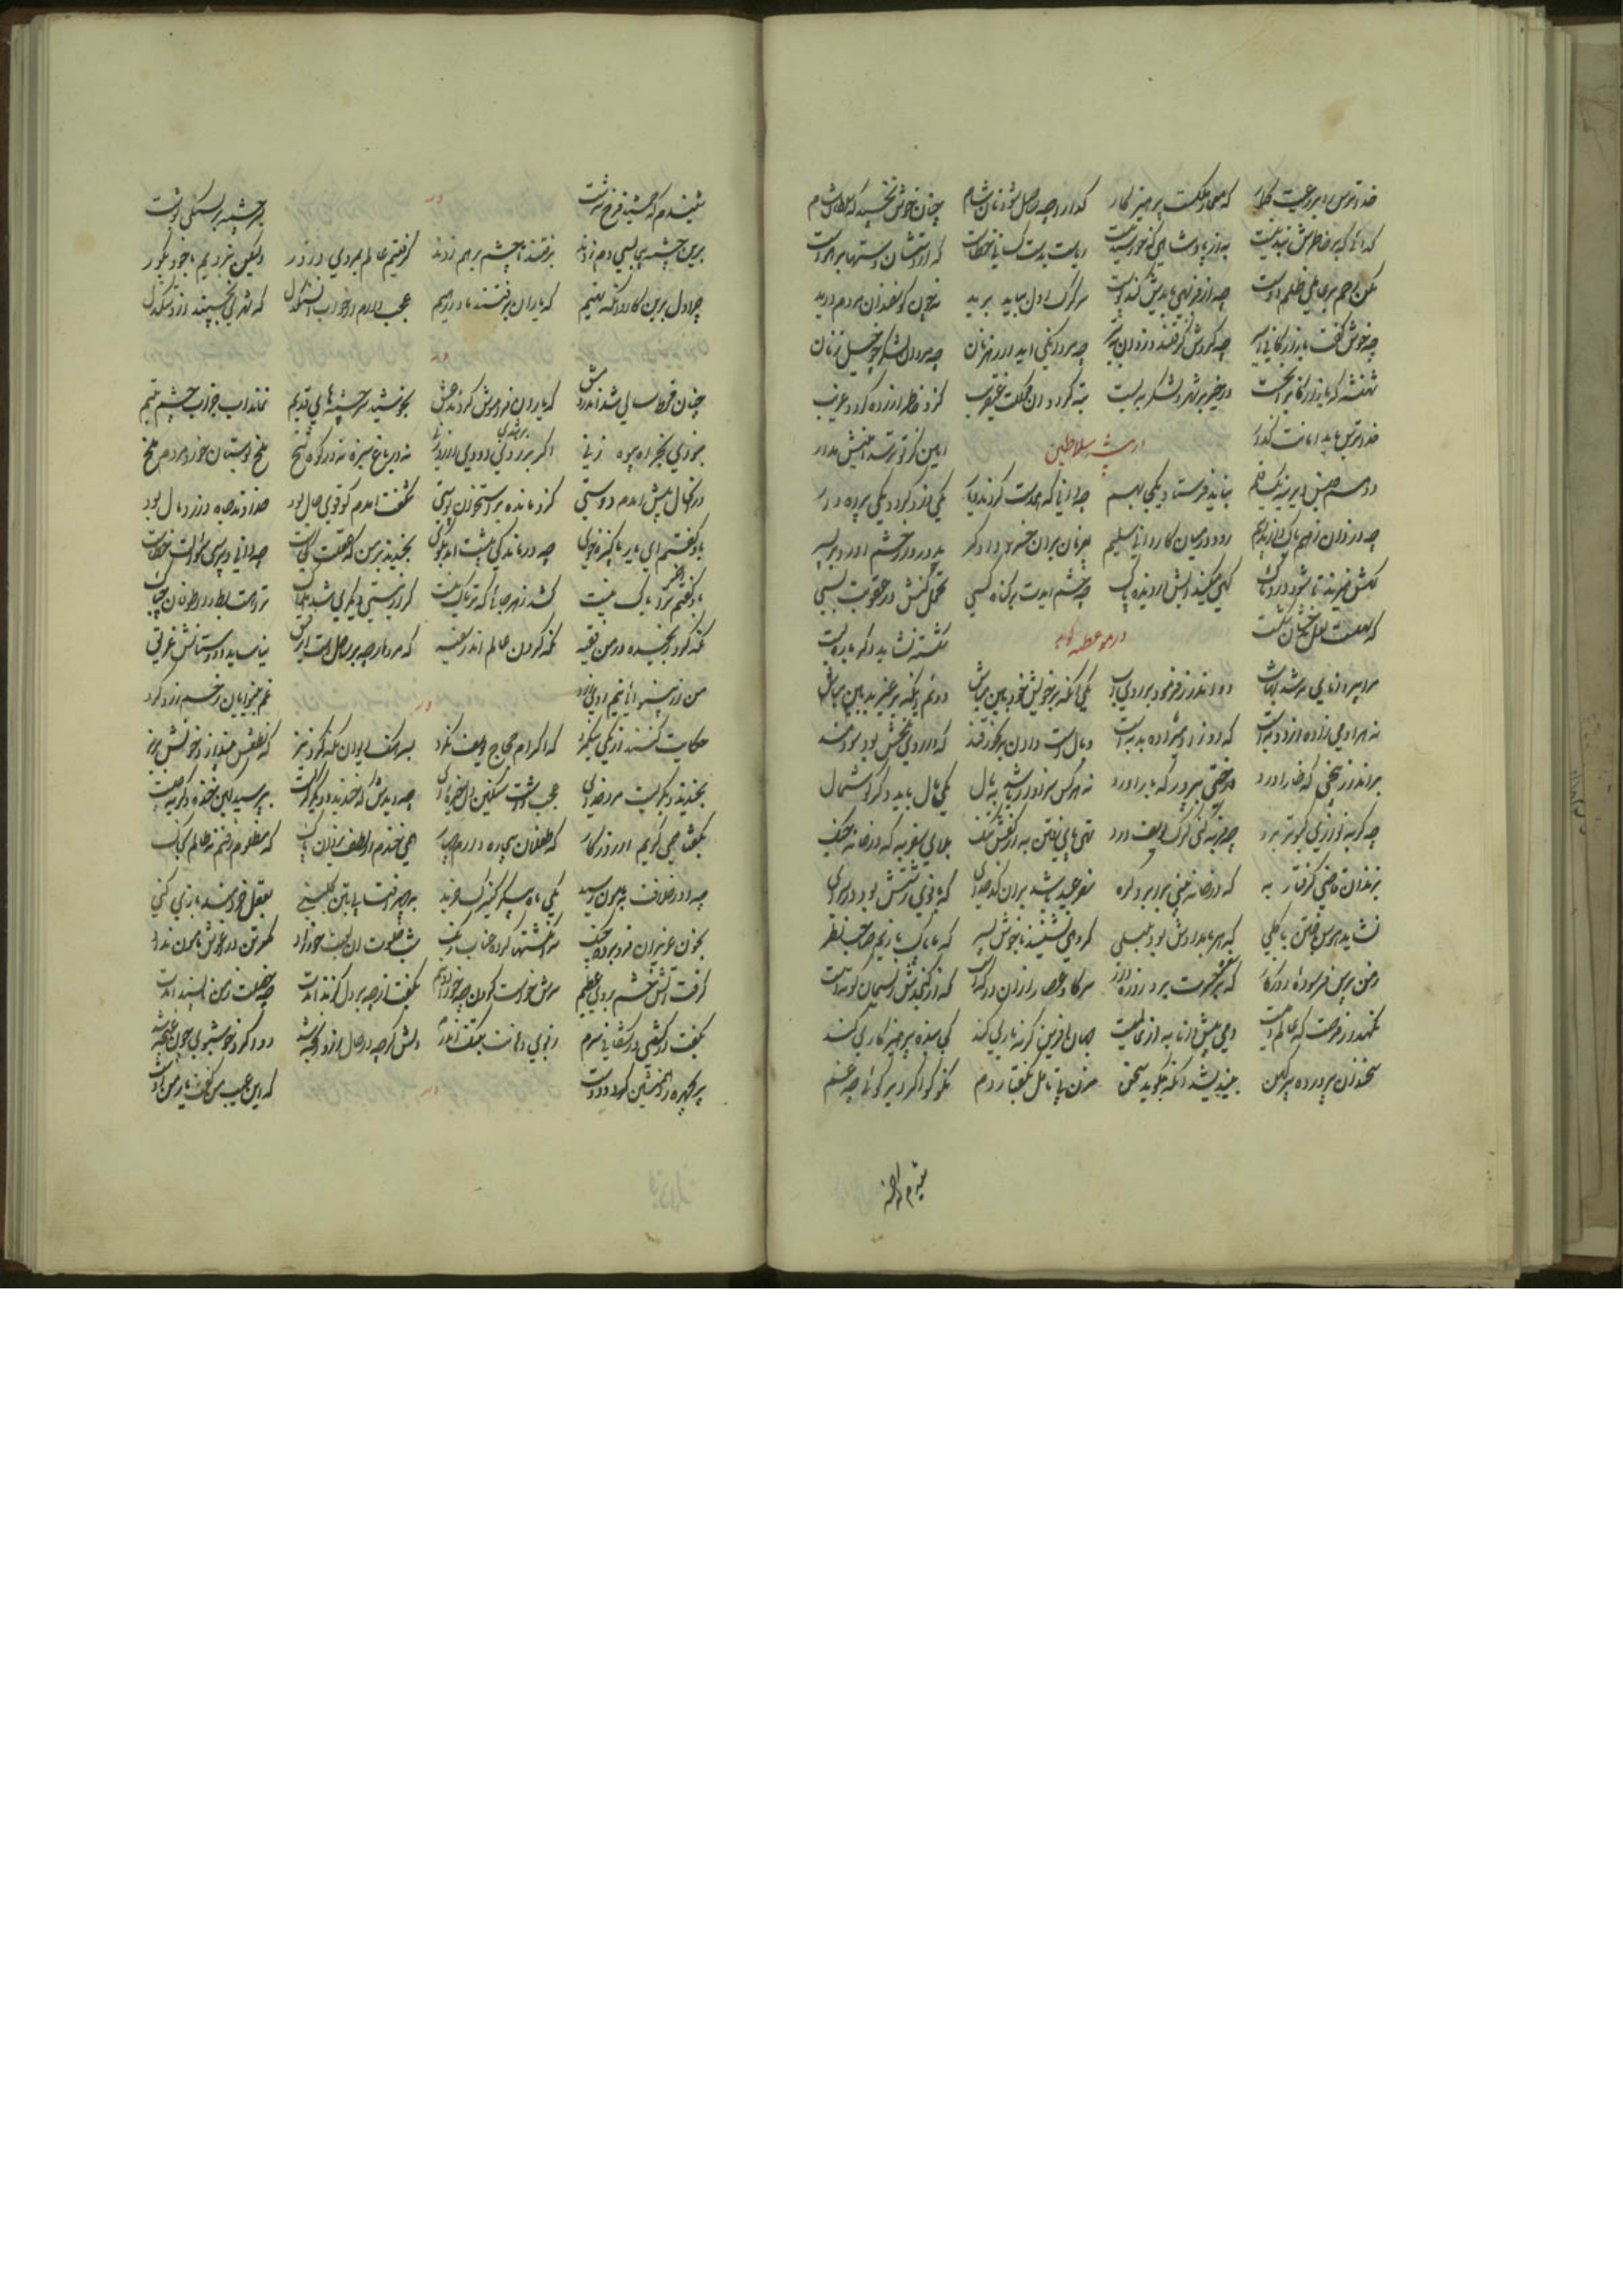 خداترس را بر رعیت گمار که معمار ملکست پرهیزگار گدا را چو حاصل شود نان شام چنان خوش بخسپد که سلطان شام
گدائی که بر خاطرش بند نیست به از پادشاهی که خورسند نیست ریاست بدست کسانی خطاست که از دستشان دستها بر خداست
مکن رحم بر عامل ظلم دوست چه از فربهی بایدش کند پوست سر گرگ اول بباید برید نه چون گوسفندان مردم درید
چه خوش گفت بازارگانی اسیر چو گردش گرفتند دزدان به تیر چو مردانگی آید از رهزنان چه مردان لشکر چه خیل زنان
شهنشه که بازارگان را بخست در خیر بر شهر و لشکر ببست تبه گردد آن مملکت عنقریب کزو خاطر آزرده گردد غریب
خداترس باید امانت گذار سلاطین امین کز تو ترسد امینش مدار
دو هم جنس دیرینه هم قلم نباید فرستاد یکجا بهم چه دانی که همدست گردند و یار یکی دزد گردد یکی پرده دار
چو دزدان ز هم باک دارند و بیم رود در میان کاروانی سلیم بفرمان بران خسرو دادگر پدروار خشم آورد بر پسر
گهش میزند تا شود دردناک گهی میکند آبش از دیده پاک چو خشم آیدت بر گناه کسی تحمل کنش در عقوبت بسی
که سهلست لعل بدخشان شکست در موعظه گوید شکسته نشاید دگر باره بست
مرا پیر دانای مرشد شهاب دو اندرز فرمود بر روی آب یکی آنکه بر خویش خودبین مباش دوم آنکه بر غیر بدبین مباش
نه هر آدمی زاده از دد به است که دد ز آدمی زاده بد به است وبالست دادن برنجور قند که داروی تلخش بود سودمند
برانداز بیخی که خار آورد درختی بپرور که بار آورد نه هر کس سزاوار باشد بمال یکی مال باید دگر گوشمال
چو گربه نوازی کبوتر برد چو فربه کنی گرگ یوسف درد تهی پای رفتن به از کفش تنگ بلای سفر به که در خانه جنگ
بزندان قاضی گرفتار به که در خانه بینی بر ابرو گره سفر عید باشد بران کدخدای که بانوی زشتش بود در سرای
نشاید هوس باختن با گلی که هر بامدادش بود بلبلی گروهی نشینند با خوش پسر که ما پاک بازیم و صاحب نظر
ز من پرس فرسوده روزگار که بر سفره حسرت برد روزه دار سر گاو عصار ازان در که است که از کنجدش ریسمان کوته است
نگهدار فرصت که عالم دمیست دمی پیش دانا به از عالمیست جهان آفرین گر نه یاری کند کجا بنده پرهیزگاری کند
سخندان پرورده پیر کهن بیندیشد آنگه بگوید سخن مزن بی تامل بگفتار دم نکو گو اگر دیر گوئی چه غم
شنیدم که جمشید فرخ سرشت وله بسرچشمه بر بسنگی نوشت
برین چشمه چون ما بسی دم زدند برفتند تا چشم بر هم زدند گرفتیم عالم بمردی و زور ولیکن نبردیم با خود بگور
چرا دل برین کاروانگه نهیم که یاران برفتند و ما در رهیم عجب دارم از خواب آن سنگدل که شهری بخسپند ازو تنگدل
وله
چنان قحط سالی شد اندر دمشق که یاران فراموش کردند عشق بخوشید سرچشمه های قدیم نماند آب جز آب چشم یتیم
نبودی بجز آه بیوه زنی اگر برشدی دودی از روزنی نه در باغ سبزه نه در کوه شخ ملخ بوستان خورد و مردم ملخ
درانحال پیش آمدم دوستی کزو مانده بر استخوان پوستی شگفت آمدم کو قوی حال بود خداوند جاه و زر و مال بود
بدو گفتم ای یار پاکیزه خوی چه درماندگی پیشت آمد بگوی بخندید برمن که عقلت کجاست چو دانی و پرسی سوالت خطاست
بدو گفتم آخر ترا باک نیست کشد زهر جائی که تریاک نیست گر از نیستی دیگری شد هلاک ترا هست بط را ز طوفان چه باک
نگه کرد رنجیده در من فقیه نگه کردن عالم اندر سفیه که مرد ارچه بر ساحلست ای رفیق نیاساید و دوستانش غریق
من از بینوائی نیم روی زرد وله غم بینوایان رخم زرد کرد
حکایت کنند از یکی نیکمرد که اکرام حجاج یوسف نکرد بسرهنگ دیوان نگه کرد تیز که نطعش بینداز و خونش بریز
بخندید و بگریست مرد خدای عجب داشت سنگین دل تیره رای چو دیدش که خندید و دیگر گریست بپرسید کین خنده و گریه چیست
بگفتا همی گریم از روزگار که طفلان بیچاره دارم چهار همی خندم از لطف یزدان پاک که مظلوم رفتم نه ظالم بخاک
چو دور خلافت بمامون رسید یکی ماه پیکر کنیزک خرید بچهر آفتاب بتن گلبنی بعقل خردمند بازی کنی
بخون عزیزان فرو برده چنگ سرانگشتها کرده عناب رنگ شب خلوت آن لعبت حورزاد مگر تن در آغوش مامون نداد
گرفت آتش خشم در وی عظیم سرش خواست کردن چو جوزا دو نیم بگفت از چه بر دل گزند آمدت چه خصلت ز من ناپسند آمدت
بگفت ار کشی ور شکافی سرم ز بوی دهانت برنج اندرم دلش گرچه در حال ازو رنجه شد دوا کرد و خوشبوی چون غنچه شد
پریچهره را همنشین کرد و دوست وله که این عیب من گفت یار من اوست